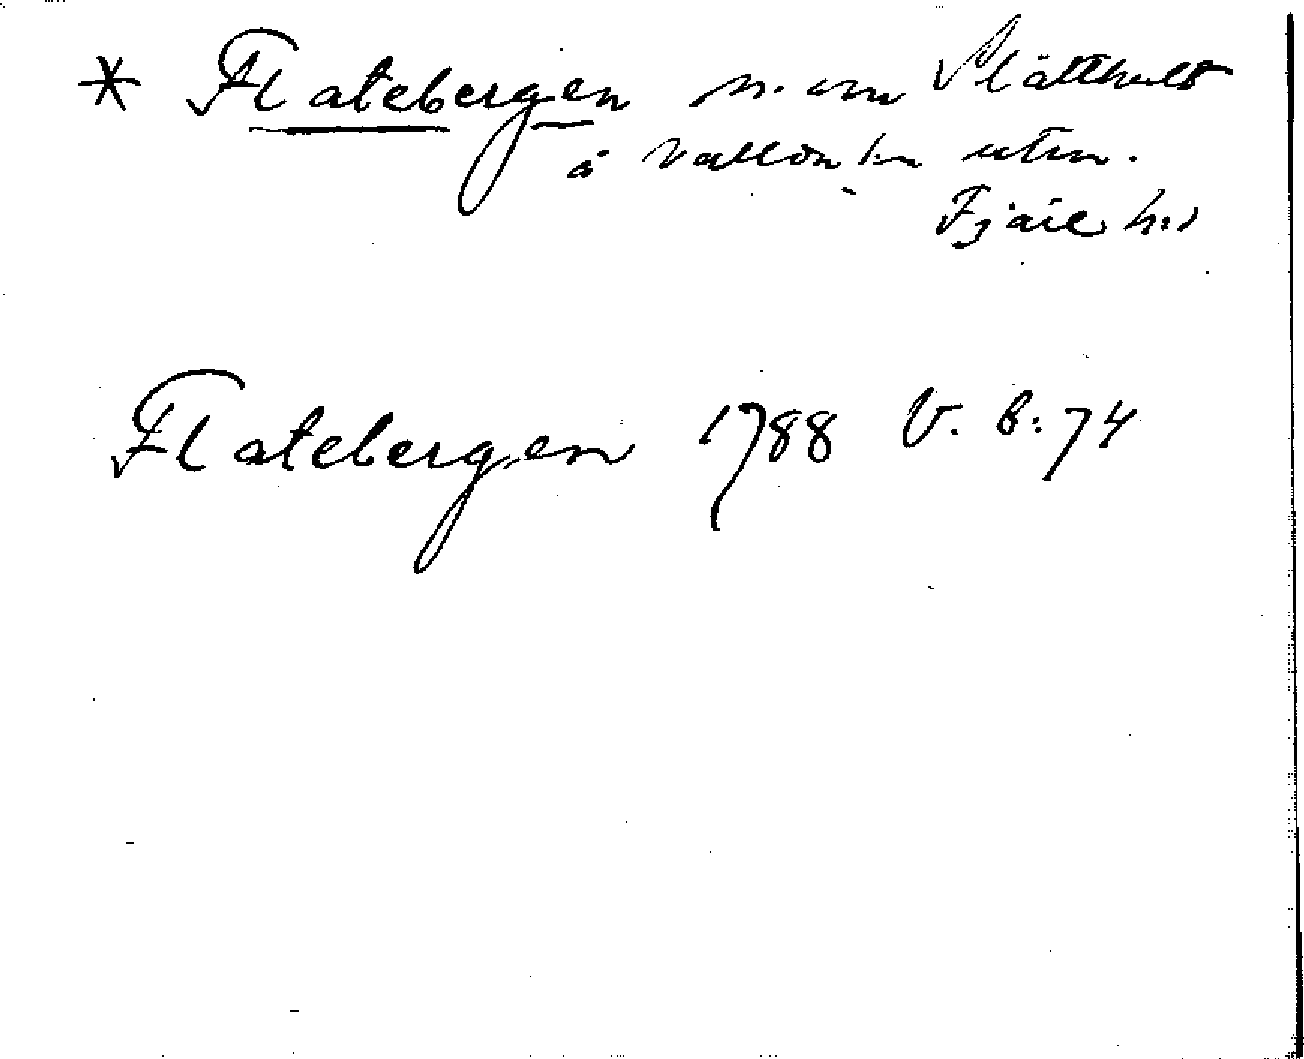 * Flatebergen n. om Slätthult
å Vallda
Fjäre hd
Flatebergen 1788 V. b: 74